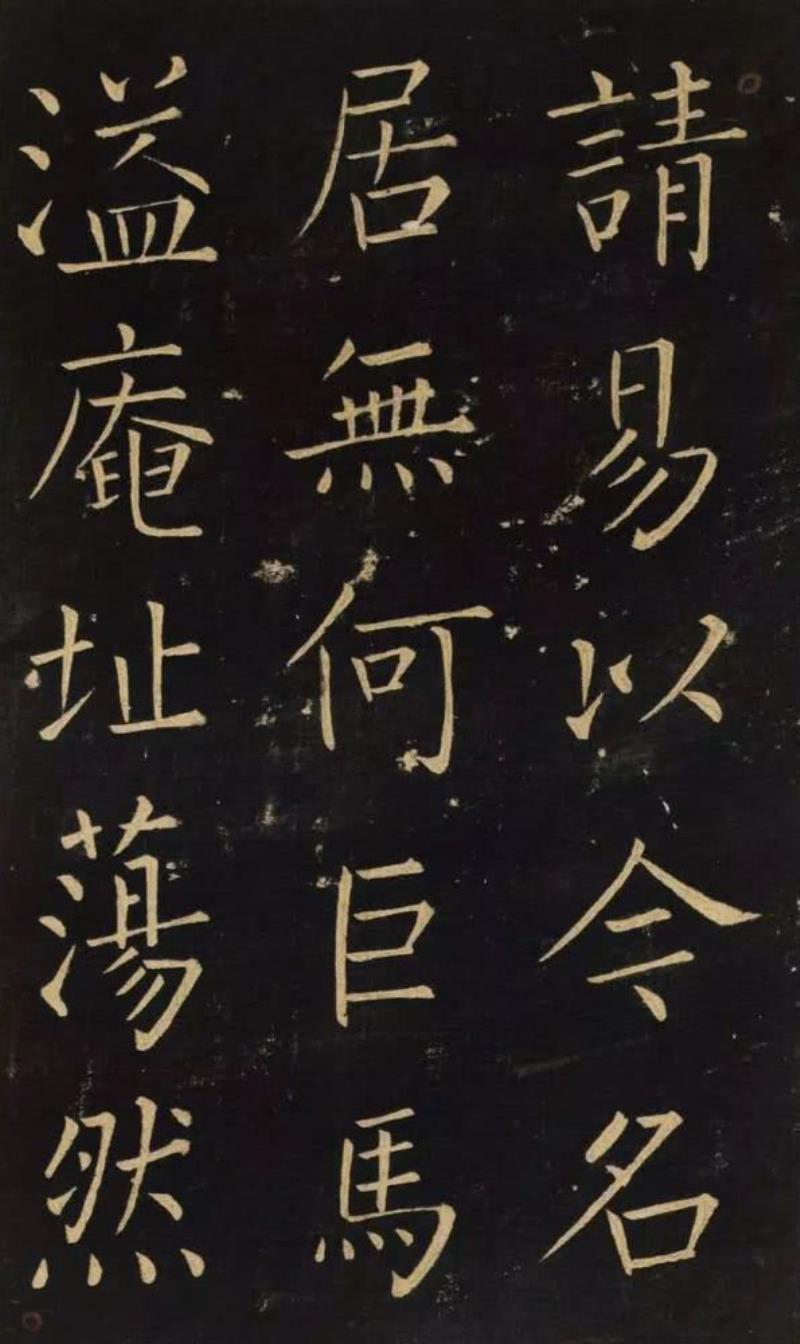 請易以今名
居無何巨馬
溢庵址蕩然